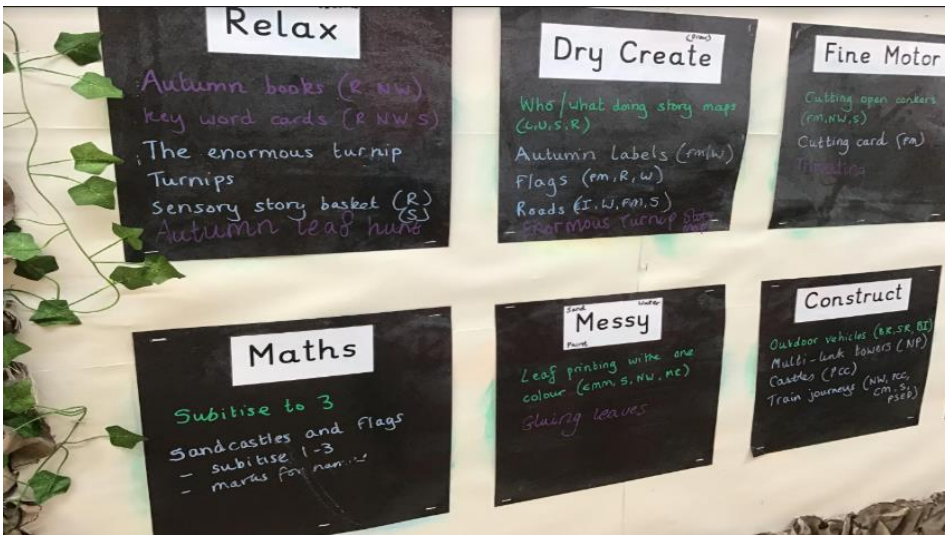 Relax
Autumn books (R NW)
Key word cards (R NW, S)
The enormous turnip
Turnips
Sensory story basket (R)
(S)
Autumn leaf hunt
Dry Create
Who/what doing story maps
(L, U, S, R)
Autumn Labels (FM/W)
Flags (FM, R, W)
Roads (I, W, FM, S)
Enormous Turnip story
maps
Fine Motor
Cutting open conkers
(FM, NW, S)
Cutting card (FM)
Threading
Maths
Subitise to 3
Sandcastles and flags
- subitise 1-3
- marks for
Sand Water
Messy
Paint
Leaf printing withe one
colour (EMM, S, NW, ME)
Gluing leaves
Construct
Outdoor vehicles (BR, SR, BI)
Multi-link towers (NP)
Castles (PCC)
Train journeys (NW, PCC,
CM, S,
PSED)